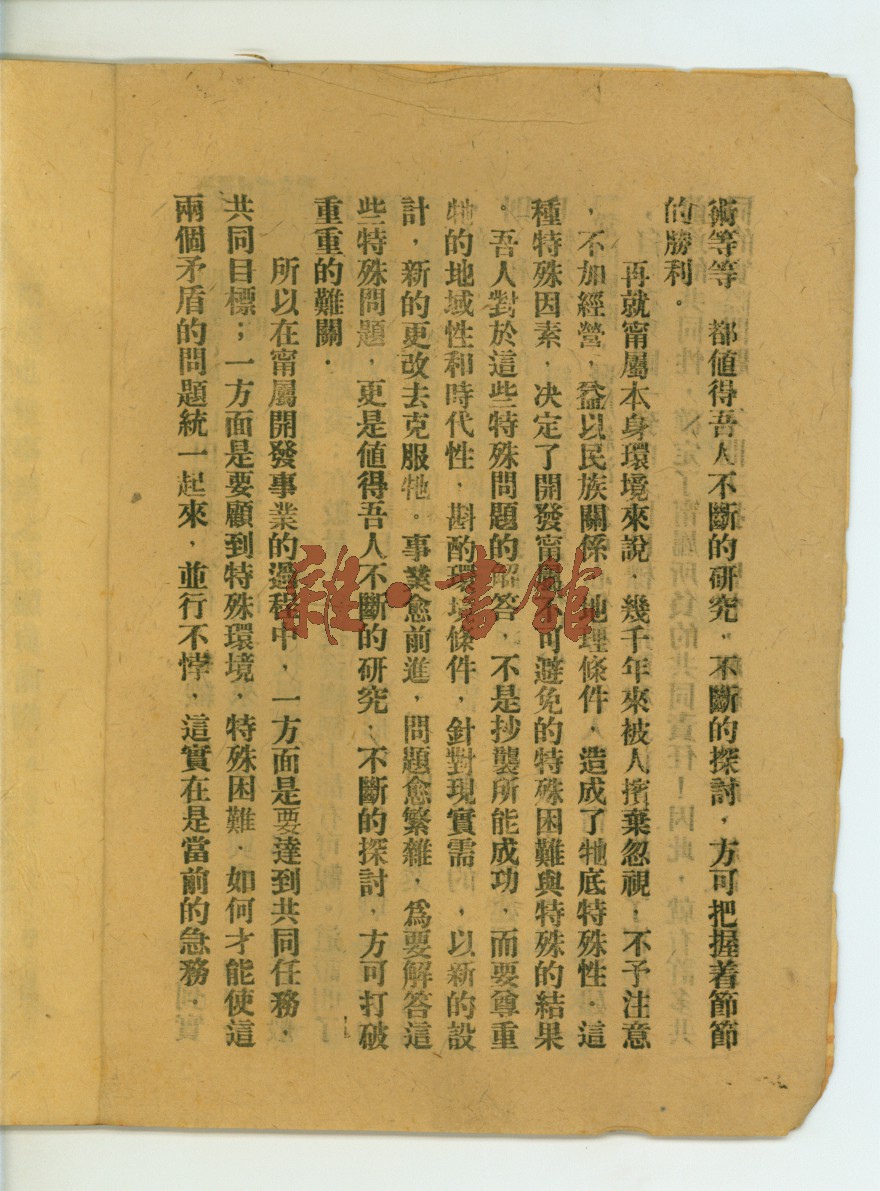 術等等　都値得吾人不斷的研究．不斷的探討．方可把握着節節
的勝利．
再就甯屬本身環境來說．幾千年來被人擯棄忽視；不予注意
．不加經營．益以民族關係．地理條件．造成了牠底特殊性．這
種特殊因素．决定了開發甯屬不可避免的特殊困難與特殊的結果
。吾人對於這些特殊問題的解答．不是抄襲所能成功．而要尊重
牠的地域性和時代性．斟酌環境條件．針對現實需　．以新的設
計．新的更改去克服牠。事業愈前進．問題愈繁雜．爲要解答這
些特殊問題．更是値得吾人不斷的研究．不斷的探討．方可打破
重重的難關．
所以在甯屬開發事業的過程中．一方面是要達到共同任務．
共同目標；一方面是要顧到特殊環境．特殊困難．如何才能使這
兩個矛盾的問題統一起來．並行不悖．這實在是當前的急務．
雜·書館